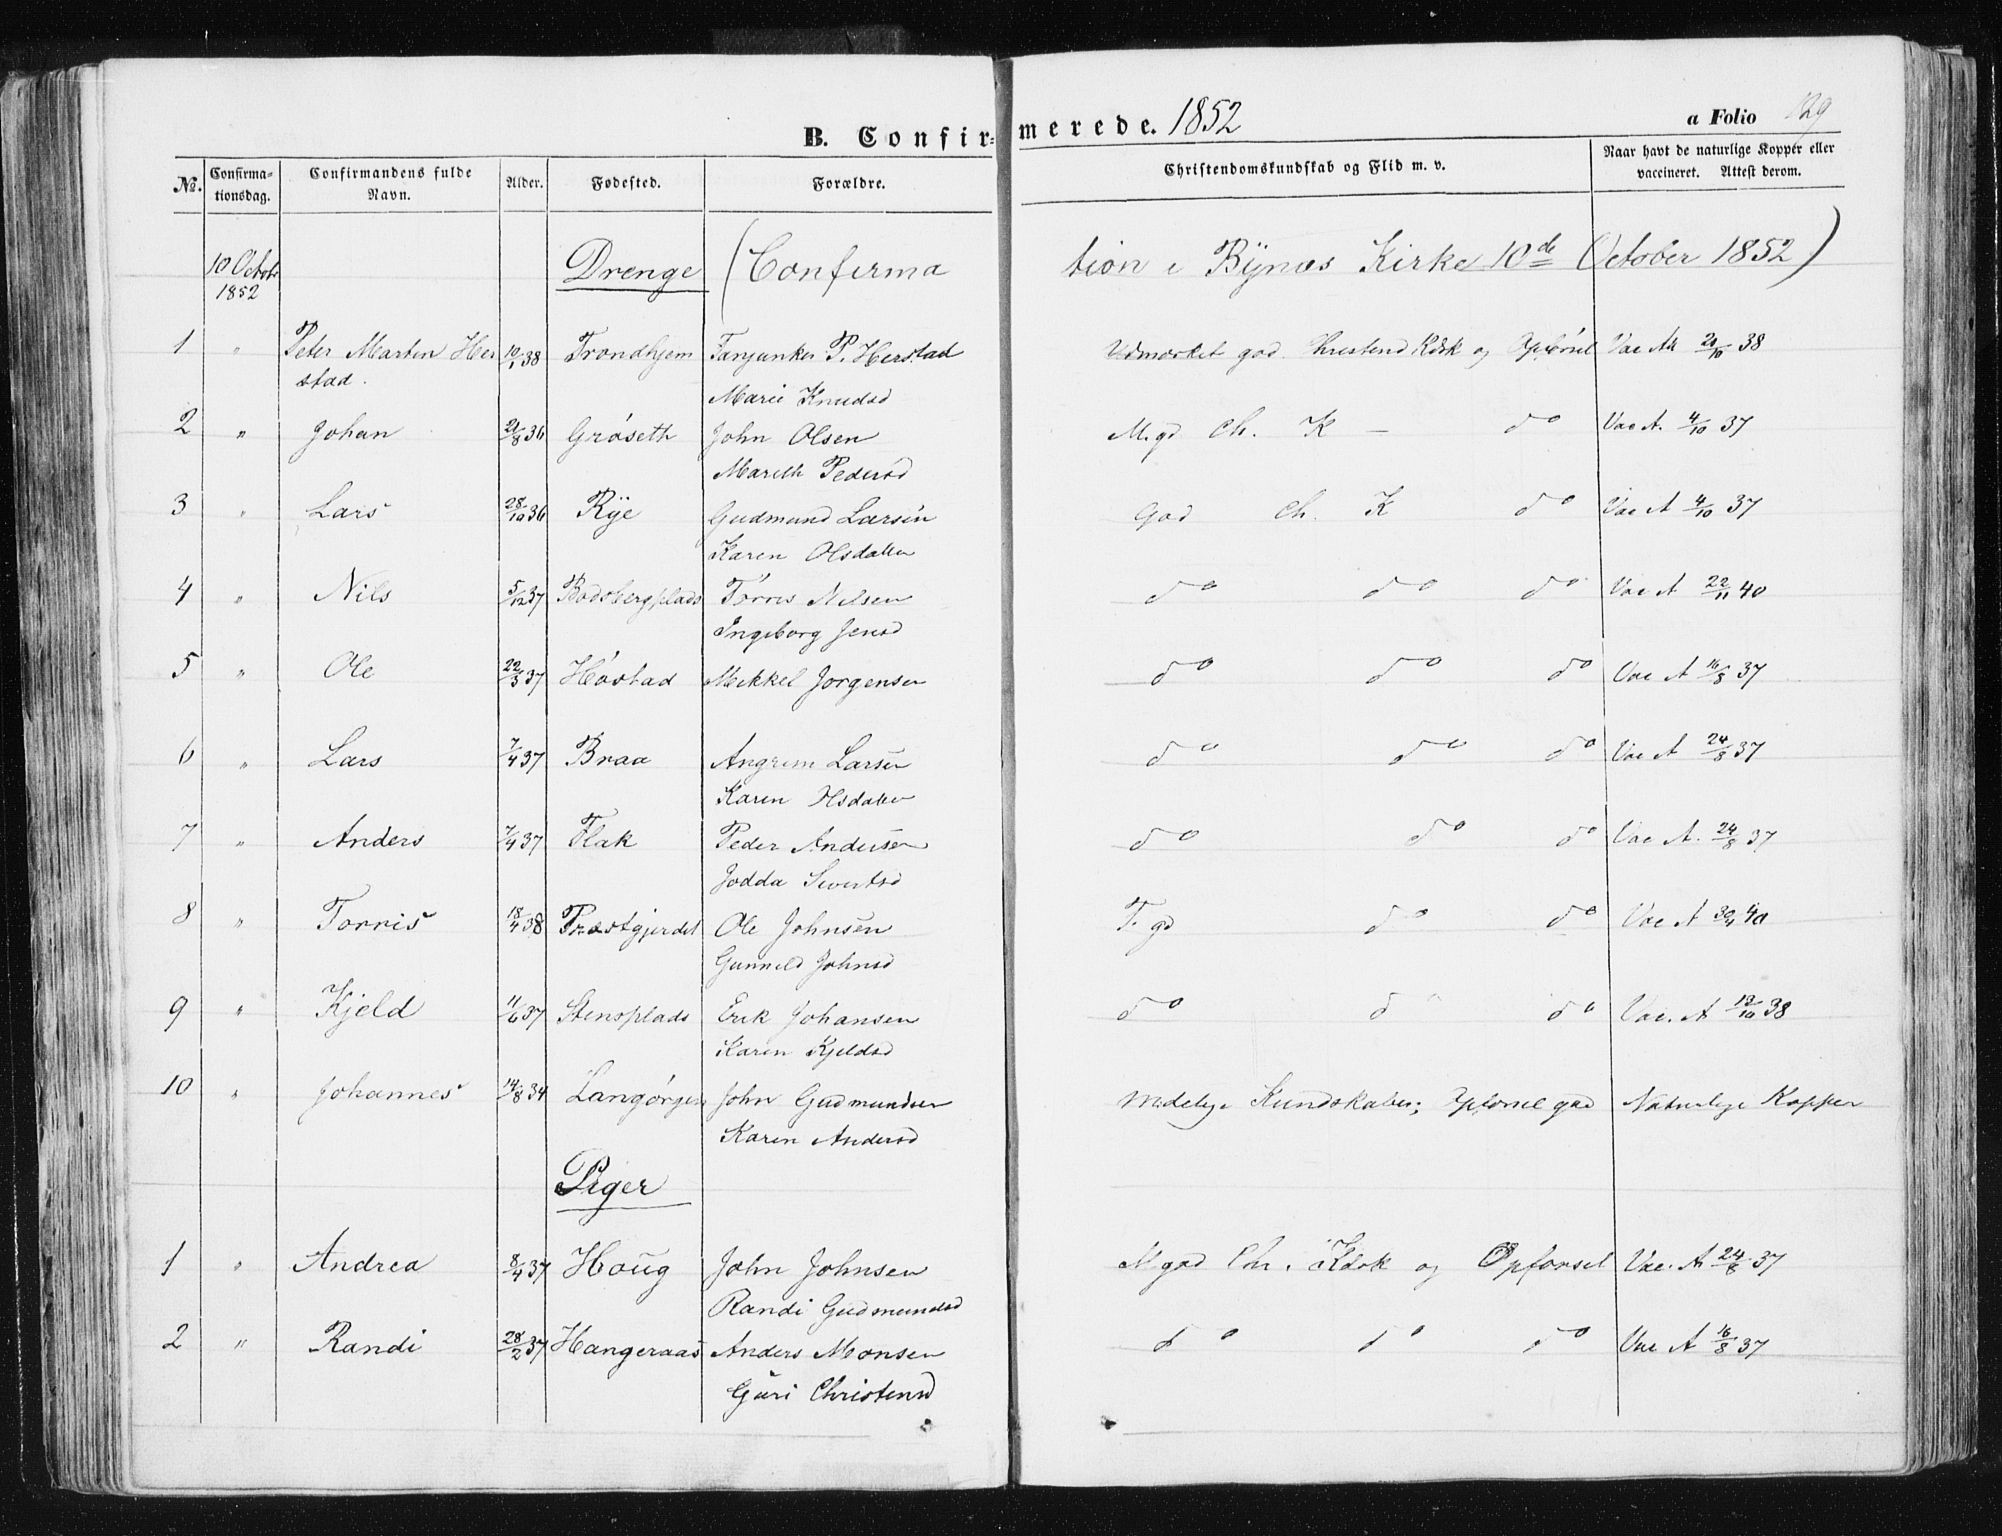 B. Confirmerede. 1852
a Folio 129
No. Confirmationsdag. Confirmandens fulde Navn. Alder. Fødested. Forældre. Christendomskundskab og Flid m. v. Naar havt de naturlige Kopper eller vaccineret. Attest derom.
10 Octobr 1852 Drenge (Confirmation i Bynæs Kirke 10de October 1852)
1 " Peter Martin Her 10/1 38 Trondhjem Fanjunker P. Herstad Udmærket god Christend Kdsk og Opførsel Vac At 21/10 38
stad. Marie Knudsd
2 " Johan 21/8 36 Grøseth John Olsen M. gd Ch. K – do Vac A. 4/10 37
Mareth Pedersd
3 " Lars 28/10 36 Rye Gudmund Larsen God Ch. K do Vac A 4/10 37
Karen Olsdatter
4 " Nils 5/12 37 Bodsbergplads Tørris Nilsen do do do Vac A 22/11 40
Ingeborg Jensd
5 " Ole 22/3 37 Høstad Mikkel Jørgensen do do do Vac A 16/8 37
6 " Lars 7/4 37 Braa Angrim Larsen do do do Vac A 24/8 37
Karen Olsdatter
7 " Anders 7/4 37 Flak Peder Andersen do do do Vac A. 24/8 37
Jodda Sivertsd
8 " Torris 18/4 38 Præstgjerdet Ole Johnsen T. gd do do Vac A 30/4 40
Gunnild Johnsd
9 " Kjeld 11/6 37 Stensplads Erik Johansen do do do Vac. A 12/10 38
Karen Kjeldsd
10 " Johannes 14/8 34 Langørgen John Gudmundsen Maadelige Kundskaber; Opførsel god Naturlige Kopper
Karen Andersd
Piger
1 " Andrea 8/4 37 Houg John Johnsen M god Chr. Kdsk og Opførsel Vac. A 24/8 37
Randi Gudmundsd
2 " Randi 28/2 37 Hangeraas Anders Monsen do do do Vac A 16/8 37
Guri Christensd